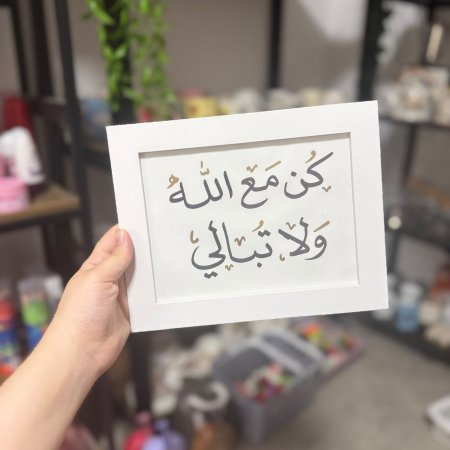 كُن مَع اللّٰهُ
وَلا تُبالي